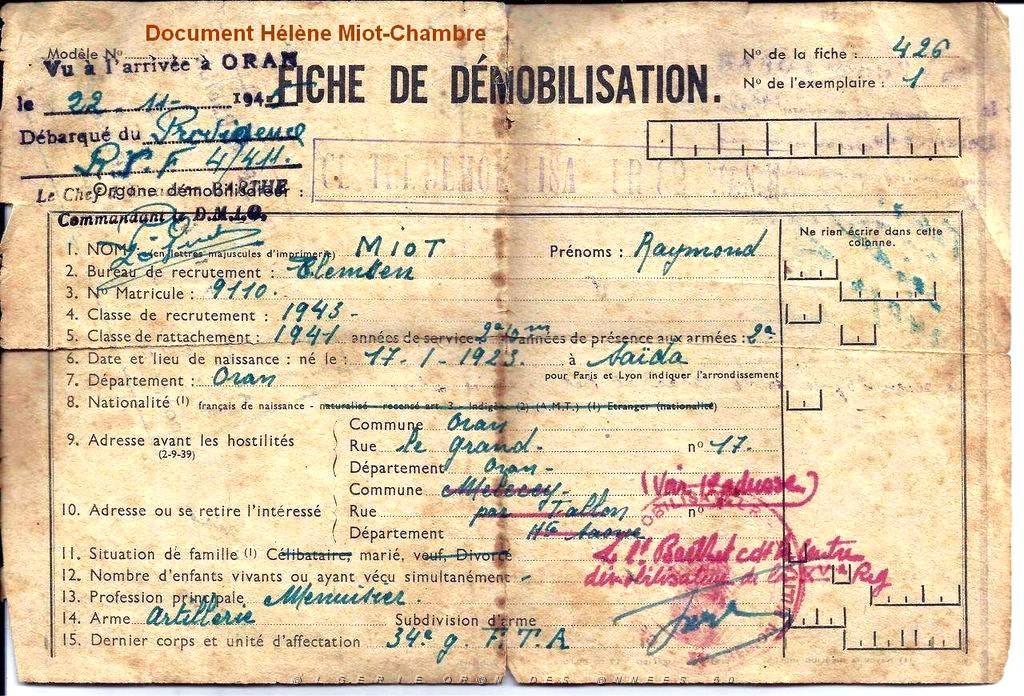 Document Hélène Miot-Chambre
Modèle N°
Vu à l'arrivée à ORAN
le 22-11-1945
Débarqué du Providence
R.S.F 4/411.
Le Chef
Commandant le D.M.I.O.
FICHE DE DÉMOBILISATION.
N° de la fiche : 426
N° de l'exemplaire : 1
Organe démobilisateur :
Ne rien écrire dans cette colonne.
1. NOM (en lettres majuscules d'imprimerie) MIOT Prénoms : Raymond
2. Bureau de recrutement : Tlemcen
3. N° Matricule : 9110.
4. Classe de recrutement : 1943 -
5. Classe de rattachement : 1941 années de service 2a 10m années de présence aux armées : 2a
6. Date et lieu de naissance : né le : 17-1-1923. à Saïda
pour Paris et Lyon indiquer l'arrondissement
7. Département : Oran
8. Nationalité (1) français de naissance - naturalisé - recensé art. 3. Indigène (2) (A.M.T.) (1) Etranger (nationalité)
9. Adresse avant les hostilités (2-9-39)
Commune Oran
Rue le grand - n° 17.
Département Oran -
10. Adresse ou se retire l'intéressé
Commune Melecey - (Voir 1e adresse)
Rue par Tallon n°
Département Hte Saone
11. Situation de famille (1) Célibataire, marié, veuf, Divorcé
Le Lt Barthet cdt le Centre
démobilisateur de la XVe Reg
12. Nombre d'enfants vivants ou ayant véçu simultanément -
13. Profession principale Menuisier.
14. Arme Artillerie Subdivision d'arme
15. Dernier corps et unité d'affectation 34e g. F.T.A